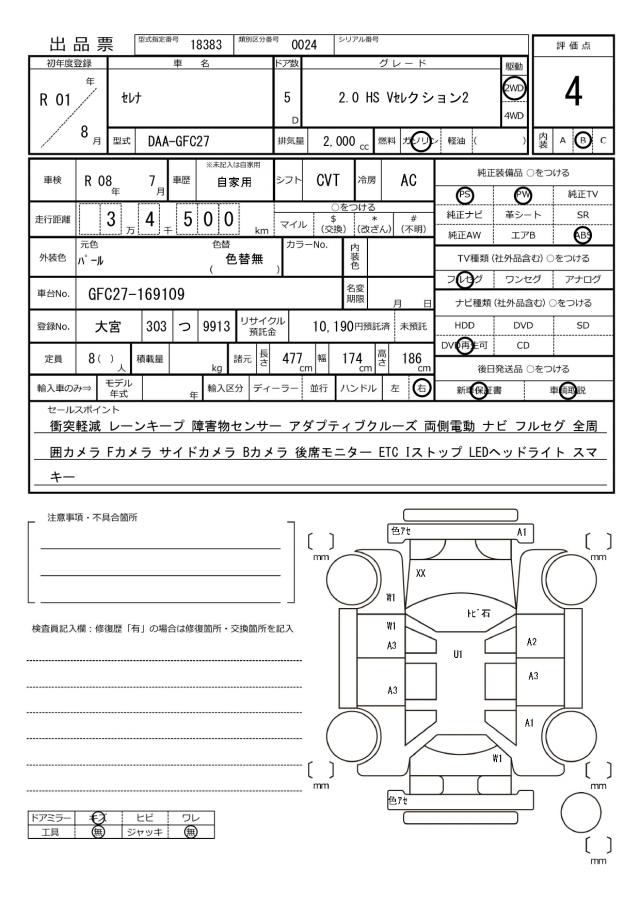 出品票 型式指定番号 18383 類別区分番号 0024 シリアル番号
評価点
初年度登録 車名 ドア数 グレード 駆動
R 01 年 セレナ 5 D 2.0 HS Vセレクション2 2WD 4
4WD
8 月 型式 DAA-GFC27 排気量 2,000 cc 燃料 ガソリン 軽油 ( ) 内装 A B C
車検 R 08 年 7 月 車歴 ※未記入は自家用 自家用 シフト CVT 冷房 AC
純正装備品 ○をつける
PS PW 純正TV
走行距離 3 万 4 千 5 0 0 km ○をつける
マイル $(交換) *(改ざん) #(不明)
純正ナビ 革シート SR
純正AW エアB ABS
外装色 元色 パール 色替 ( 色替無 ) カラーNo. 内装色
TV種類 (社外品含む) ○をつける
フルセグ ワンセグ アナログ
車台No. GFC27-169109 名変期限 月 日
ナビ種類 (社外品含む) ○をつける
登録No. 大宮 303 つ 9913 リサイクル預託金 10,190円預託済 未預託
HDD DVD SD
DVD再生可 CD
定員 8 ( ) 人 積載量 kg 諸元 長さ 477 cm 幅 174 cm 高さ 186 cm
後日発送品 ○をつける
輸入車のみ⇒ モデル年式 年 輸入区分 ディーラー 並行 ハンドル 左 右
新車保証書 車輌取説
セールスポイント
衝突軽減 レーンキープ 障害物センサー アダプティブクルーズ 両側電動 ナビ フルセグ 全周
囲カメラ Fカメラ サイドカメラ Bカメラ 後席モニター ETC Iストップ LEDヘッドライト スマ
キー
注意事項・不具合箇所
色アセ A1
mm mm
XX
W1
トビ石
検査員記入欄：修復歴「有」の場合は修復箇所・交換箇所を記入
W1
A3 A2
U1
A3 A3
A1
W1
mm mm
色アセ
ドアミラー キズ ヒビ ワレ
工具 無 ジャッキ 無
mm